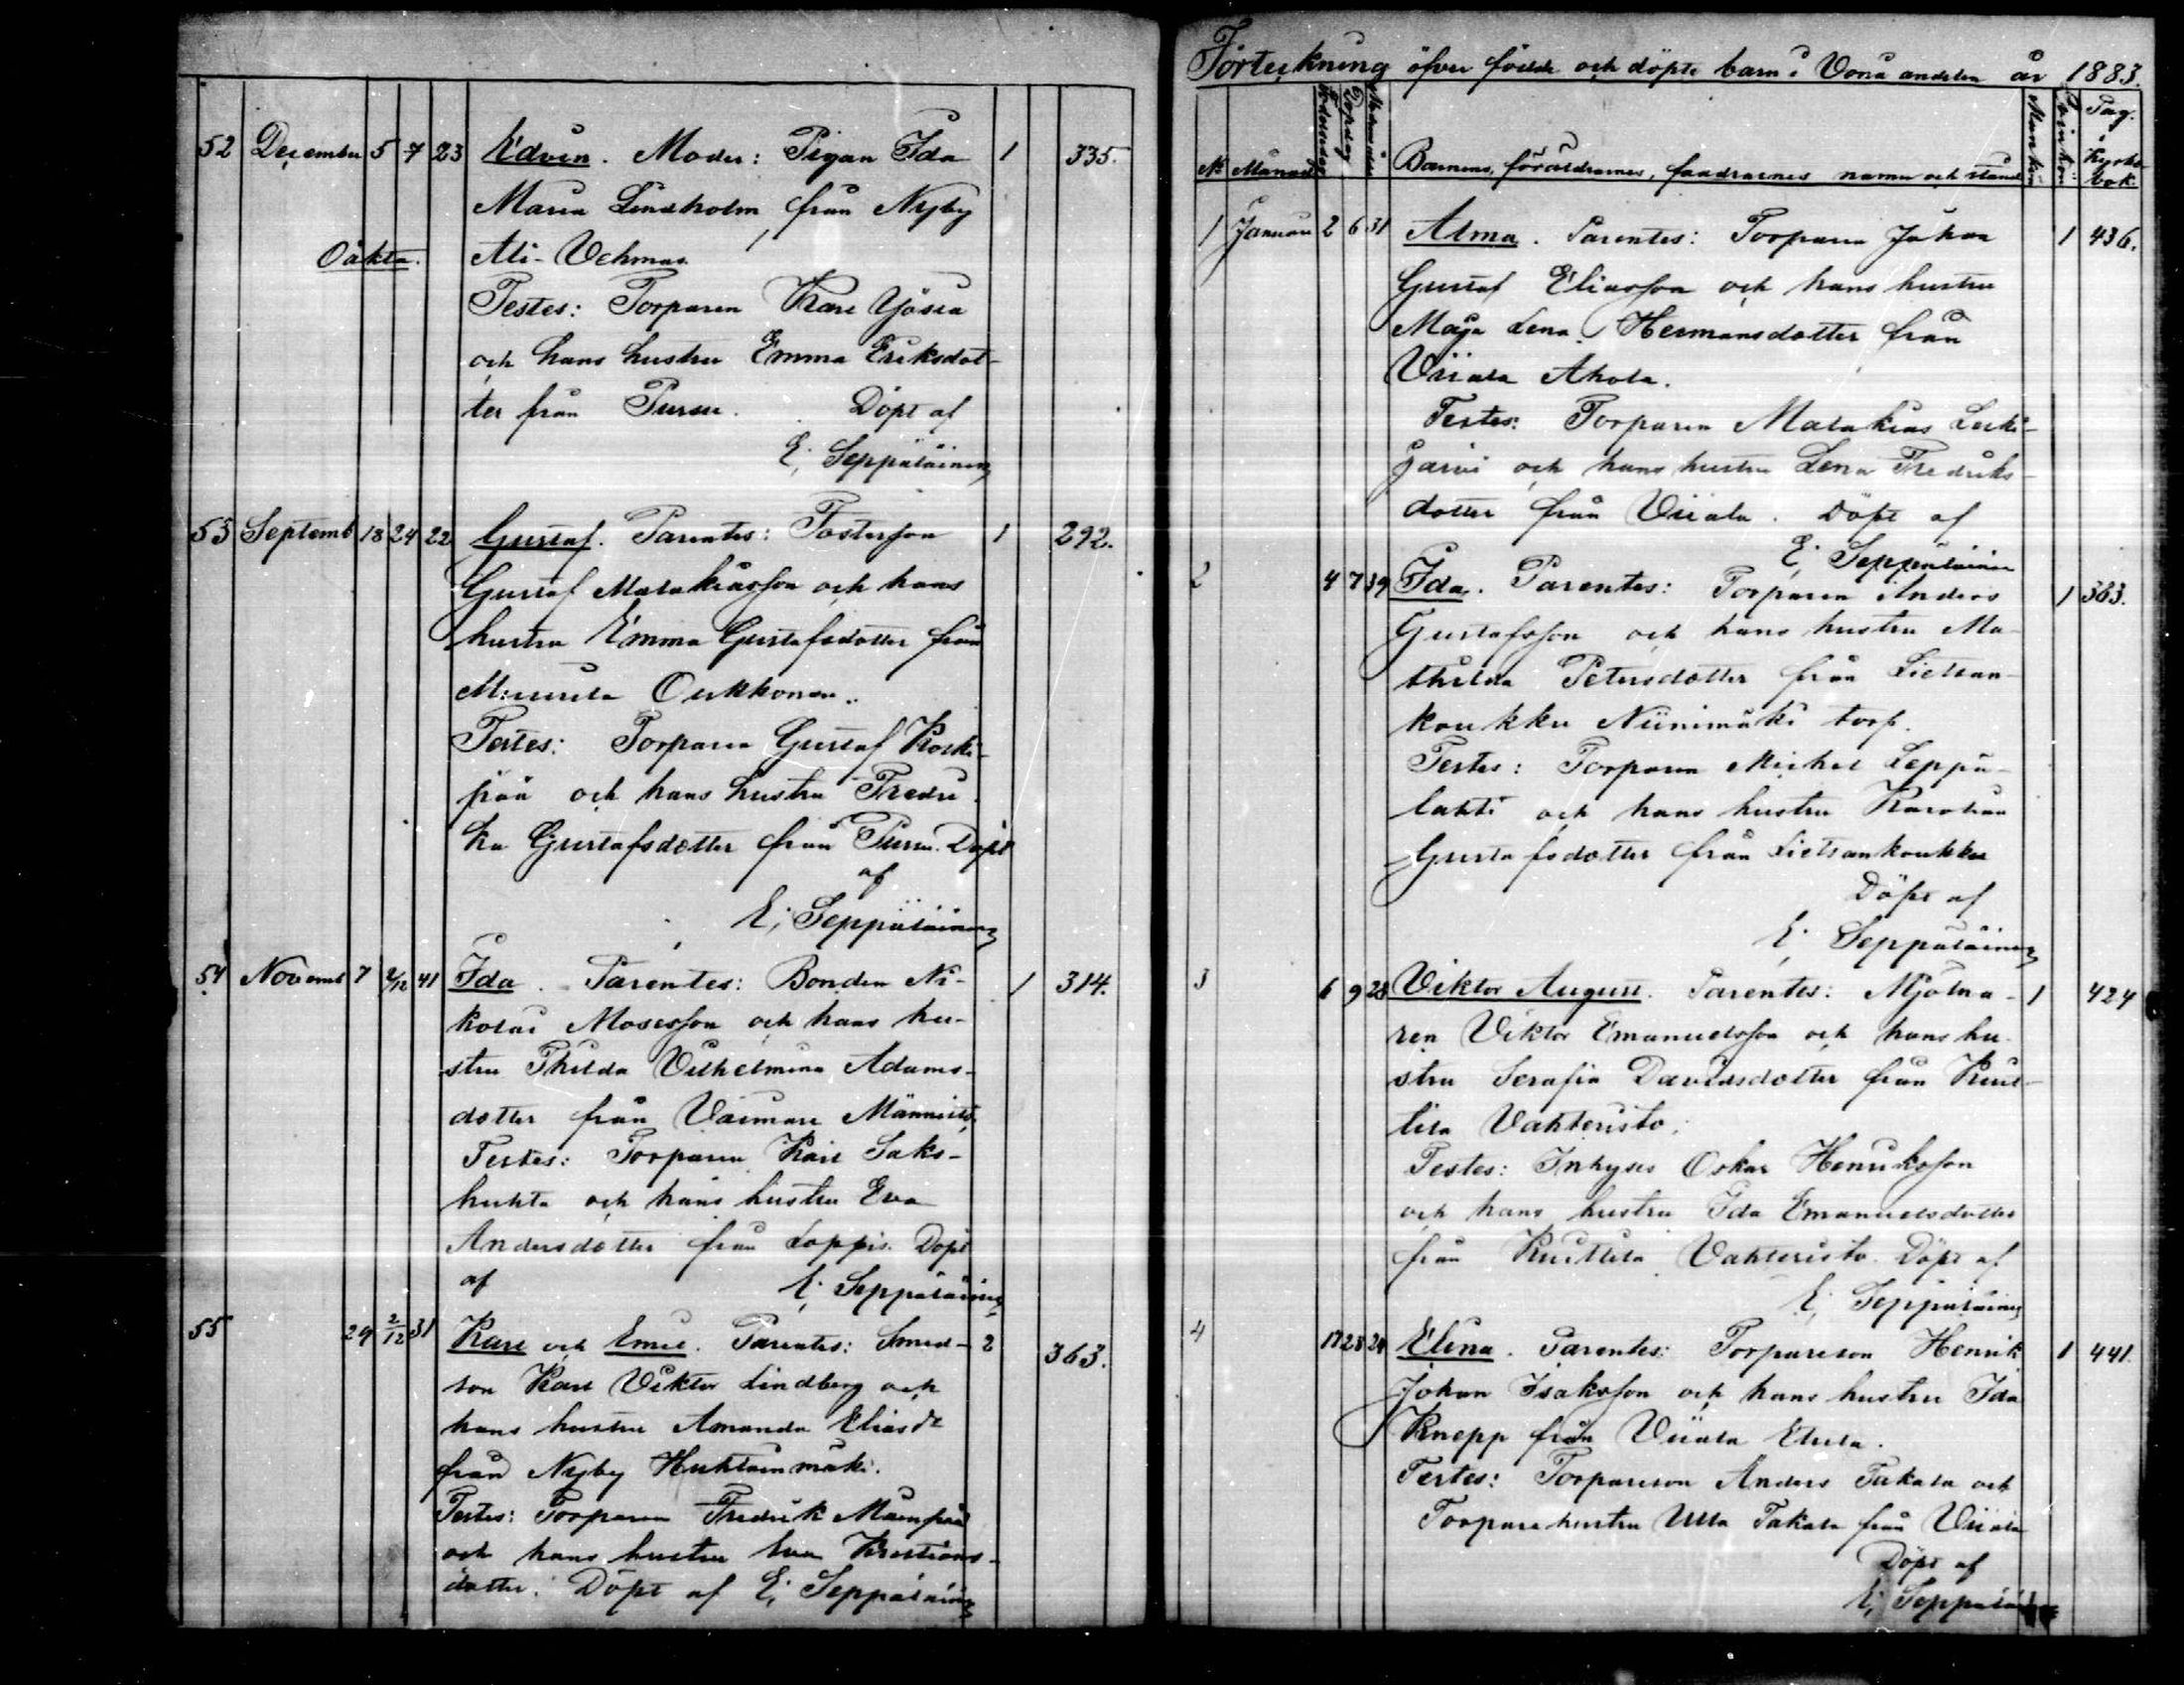 52 December 5 7 23 Edvin. Moder: Pigan Ida 1 335.
Maria Lindholm från Nyby
Oäkta. Ali-Vehmas
Testes: Torparen Karl Yöska
och hans hustru Emma Eriksdot-
ter från Pursu. Döpt af
E, Seppäläinen
53 Septemb 18 24 22 Gustaf. Parentes: Fosterson 1 292.
Gustaf Malakiasson och hans
hustru Emma Gustafsdotter från
Oukkonen.
Testes: Torparen Gustaf Koski-
pää och hans hustru Fredri
ka Gustafsdotter från Pursu. Döpt
af
E, Seppäläinen
54 Novemb 7 2/12 41 Ida. Parentes: Bonden Ni- 1 314.
kolai Mosesson och hans hu-
stru Thilda Vilhelmina Adams-
dotter från Männistö
Testes: Torparen Karl Saks-
huhta och hans hustru Eva
Andersdotter från Loppis. Döpt
af E, Seppäläinen
55 24 2/12 31 Karl och Emil. Parentes: Smed- 2 363.
son Karl Viktor Lindberg och
hans hustru Amanda Eliasdr
från Nyby Huhtainmäki.
Testes: Torparen Fredrik Maenpää
och hans hustru Eva Kristians-
dotter. Döpt af E, Seppäläinen
Förteckning öfver födde och döpte barn i Vona andelen år 1883.
No Månad Födelsedag Dopdag Moderns ålder Barnens, föräldrarnes, faddrarnes namn och stånd Mankön Qvinkön Pag. i Kyrko-
bok.
1 Januari 2 6 31 Alma. Parentes: Torparen Johan 1 436.
Gustaf Eliasson och hans hustru
Maja Lena Hermansdotter från
Viiala Ahola.
Testes: Torparen Malakias Leski-
järvi och hans hustru Lena Fredriks-
dotter från Viiala. Döpt af
E, Seppäläinen
2 4 7 39 Ida. Parentes: Torparen Anders 1 363.
Gustafsson och hans hustru Ma-
thilda Petersdotter från Lietsan-
koukku Niinimäki torp.
Testes: Torparen Michel Leppä-
lahti och hans hustru Karolina
Gustafsdotter från Lietsankoukku
Döpt af
E, Seppäläinen
3 6 9 28 Viktor August. Parentes: Mjölna- 1 424
ren Viktor Emanuelsson och hans hu-
stru Serafia Davidsdotter från Kuut-
tila Vahteristo.
Testes: Inhyses Oskar Henriksson
och hans hustru Ida Emanuelsdotter
från Kuuttila Vahteristo. Döpt af
E, Seppäläinen
4 17 28 24 Elina. Parentes: Torpareson Henrik 1 441.
Johan Isaksson och hans hustru Ida
Knepp från Viiala Etula.
Testes: Torpareson Anders Takala och
Torparehustru Ulla Takala från Viiala
Döpt af
E, Seppäläinen